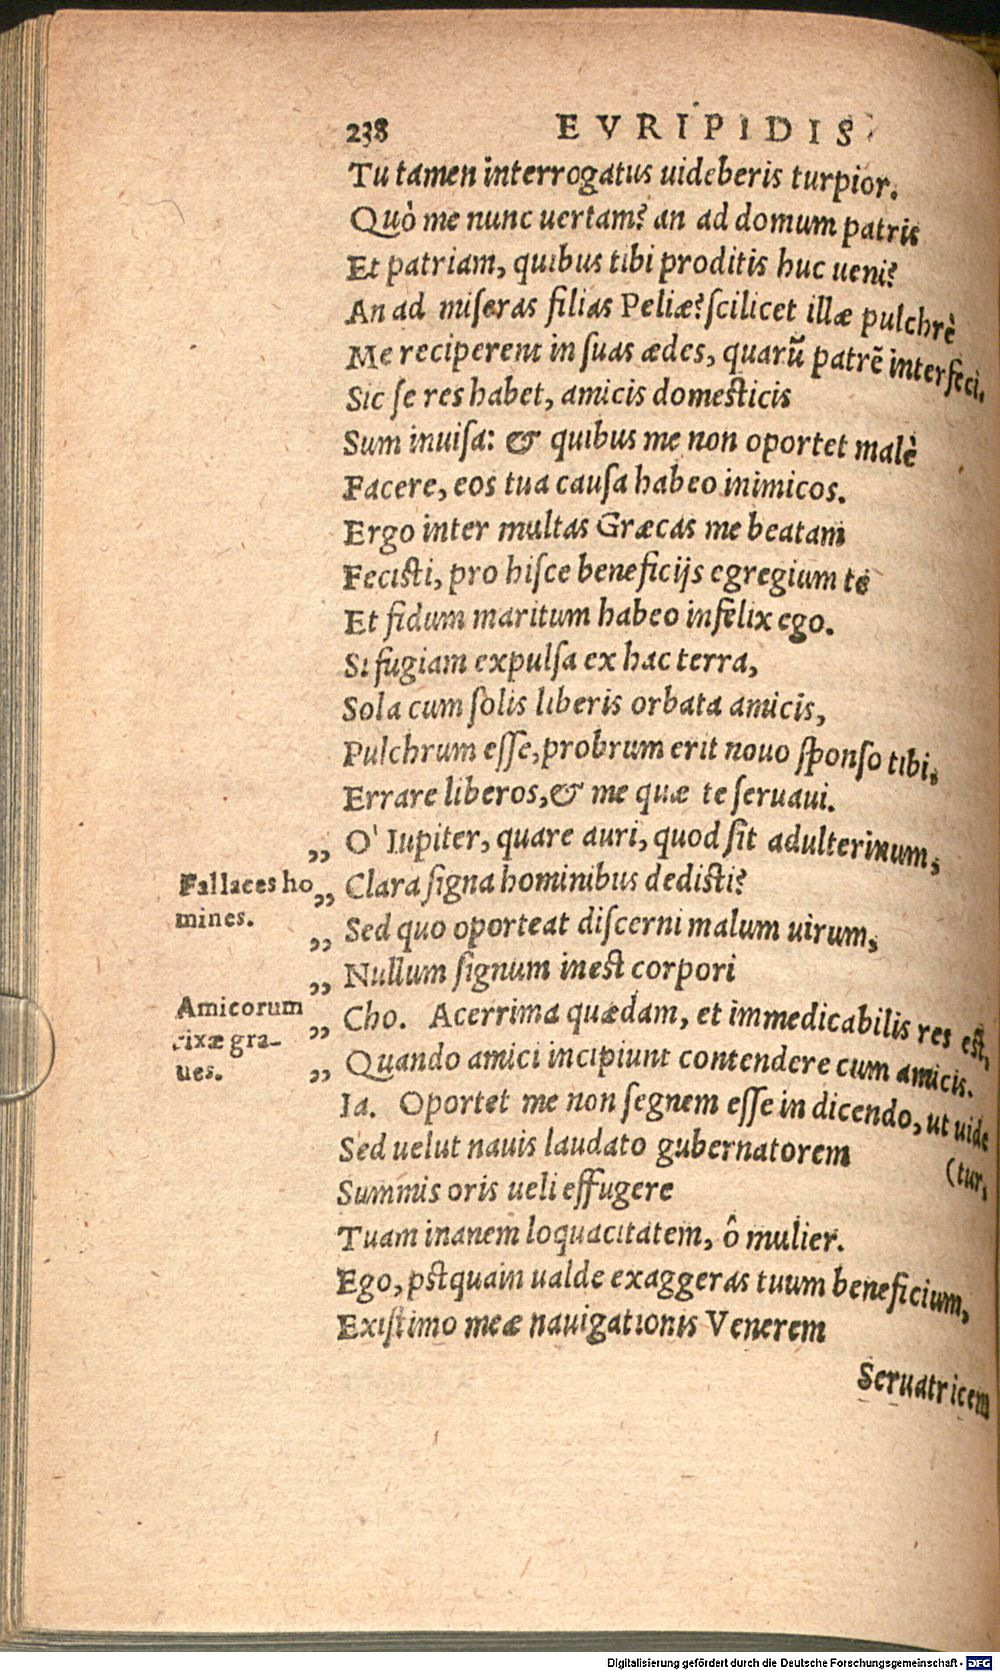 238 EVRIPIDIS
Tu tamen interrogatus uideberis turpior.
Quò me nunc uertam? an ad domum patris
Et patriam, quibus tibi proditis huc ueni?
An ad miseras filias Peliæ? scilicet illæ pulchrè
Me reciperent in suas ædes, quarũ patrẽ interfeci.
Sic se res habet, amicis domesticis
Sum inuisa: & quibus me non oportet malè
Facere, eos tua causa habeo inimicos.
Ergo inter multas Græcas me beatam
Fecisti, pro hisce beneficijs egregium te
Et fidum maritum habeo infelix ego.
Si fugiam expulsa ex hac terra,
Sola cum solis liberis orbata amicis,
Pulchrum esse, probrum erit nouo sponso tibi,
Errare liberos, & me quæ te seruaui.
„ O' Iupiter, quare auri, quod sit adulterinum,
Fallaces ho
mines.
„ Clara signa hominibus dedisti?
„ Sed quo oporteat discerni malum uirum,
„ Nullum signum inest corpori
Amicorum
rixæ gra-
ues.
„ Cho. Acerrima quædam, et immedicabilis res est,
„ Quando amici incipiunt contendere cum amicis.
Ia. Oportet me non segnem esse in dicendo, ut uide
(tur,
Sed uelut nauis laudato gubernatorem
Summis oris ueli effugere
Tuam inanem loquacitatem, ô mulier.
Ego, pstquam ualde exaggeras tuum beneficium,
Existimo meæ nauigationis Venerem
Seruatricem
Digitalisierung gefördert durch die Deutsche Forschungsgemeinschaft - DFG